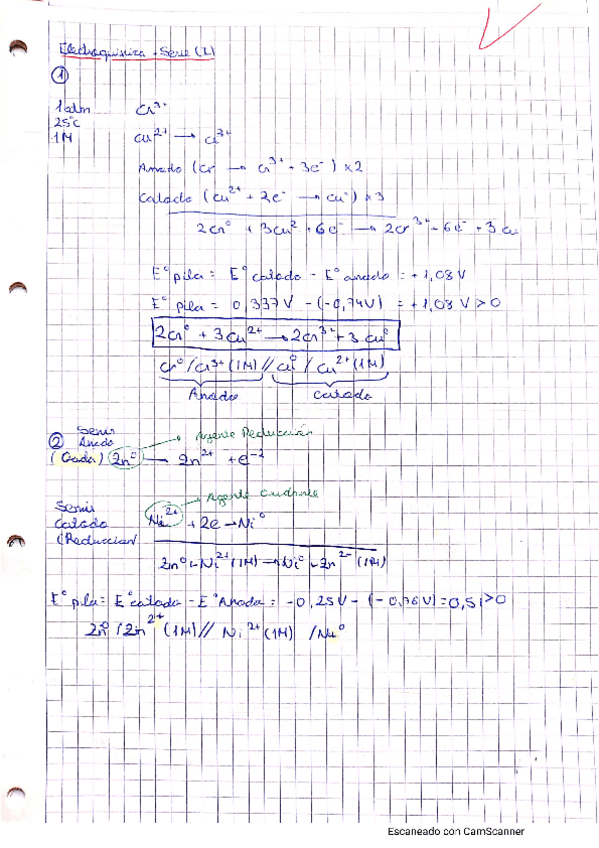 Electroquimica - Serie (2)
①
1 atm Cr³⁺
25°C
1M Cu²⁺ → Cr³⁺
Anodo (Cr → Cr³⁺ + 3e⁻) x2
Catodo (Cu²⁺ + 2e⁻ → Cu⁰) x3
2Cr⁰ + 3Cu² + 6e⁻ → 2Cr³⁺ + 6e⁻ + 3Cu
E° pila = E° catodo - E° anodo = +1,08 V
E° pila = 0,337V - (-0,74V) = +1,08 V > 0
2Cr⁰ + 3Cu²⁺ → 2Cr³⁺ + 3Cu⁰
Cr⁰/Cr³⁺(1M)//Cu⁰/Cu²⁺(1M)
Anodo Catodo
② Semi Anodo
→ Agente Reducción
(Oxida) Zn⁰ → Zn²⁺ + e⁻²
→ Agente Oxidante
Semi Catodo (Reduccion) Ni²⁺ + 2e → Ni⁰
Zn⁰ + Ni²⁺(1M) → Ni⁰ + Zn²⁺(1M)
E° pila = E° catodo - E° Anodo = -0,25V - (-0,76V) = 0,51 > 0
Zn⁰/Zn²⁺(1M)//Ni²⁺(1M)/Ni⁰
Escaneado con CamScanner